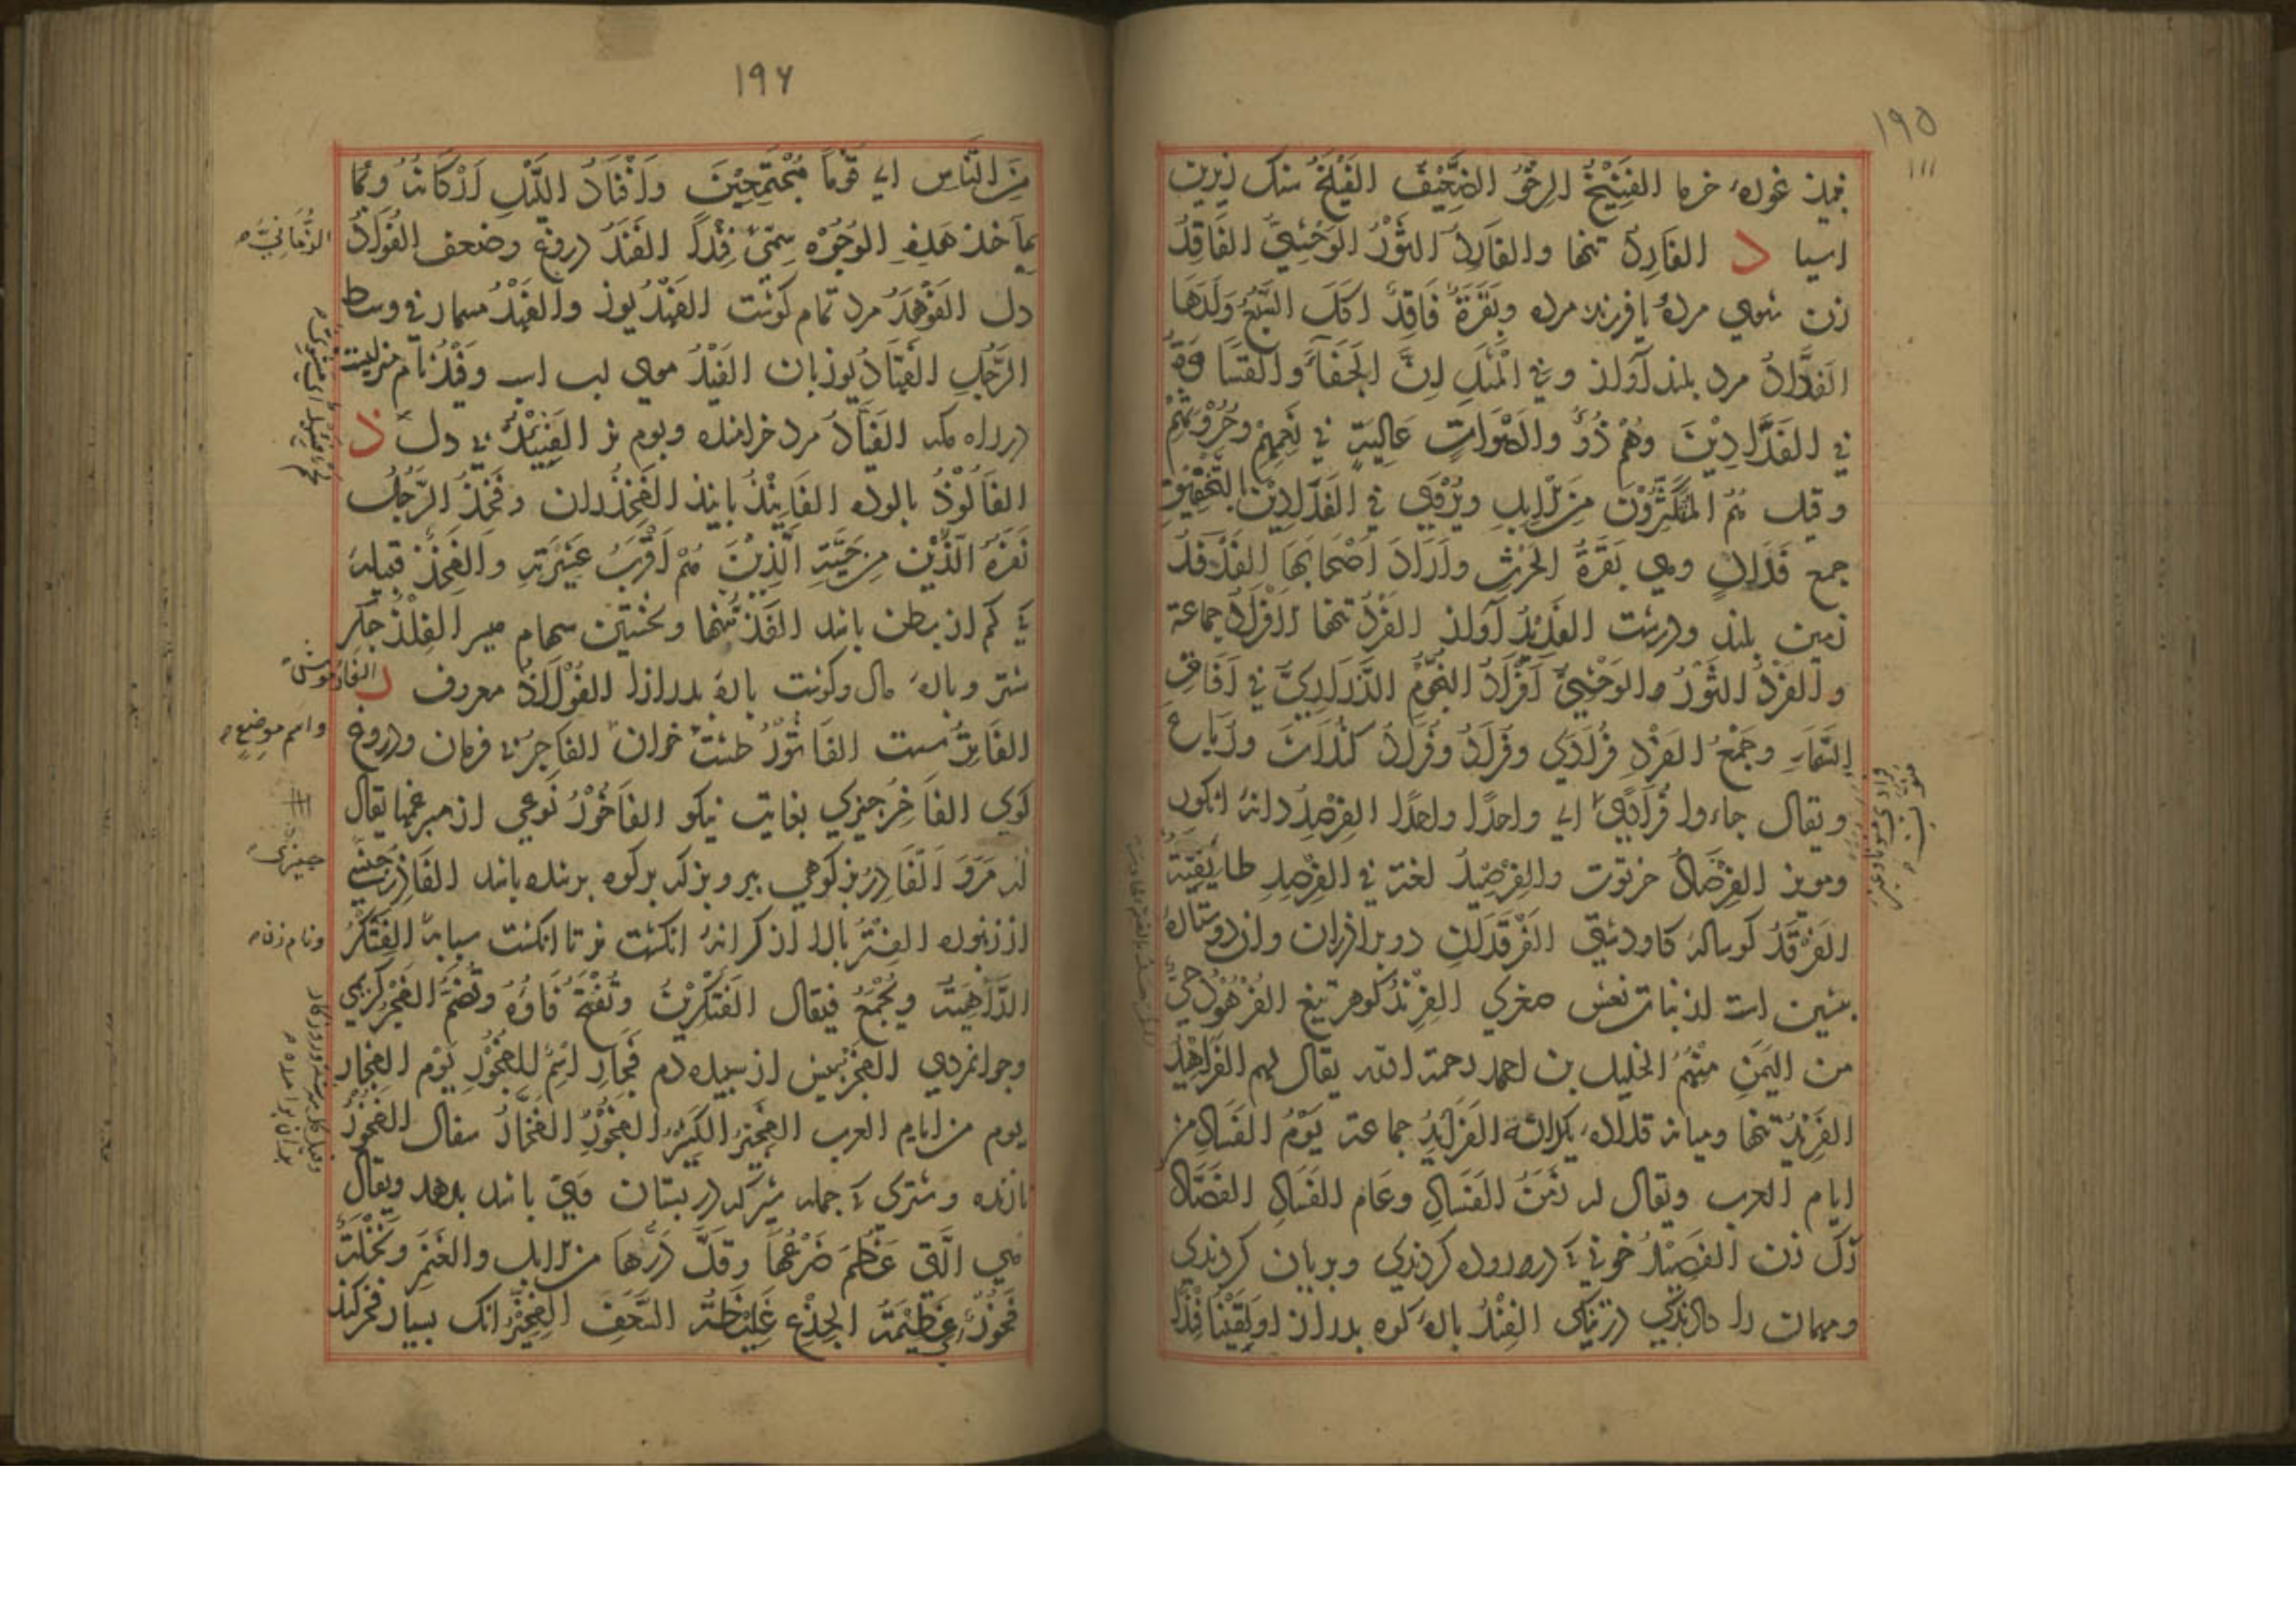 ١٩٥
١١١
نبيذ غوره خرما الفَنِيْخُ الرِخْوُ الضَّعِيْفُ الفَيْلَخُ سنك زيرين
اسيا د الفَارِدُ تنها والفَارِدُ الثَّوْرُ الوَحْشِيُّ الفَاقِدُ
زن شوي مرده يا فرزند مرده وبَقَرَةٌ فَاقِدٌ اكَلَ السَّبُعُ وَلَدَهَا
الفَدَّادُ مرد بلند آواز وفي المَثَلِ اِنَّ الجَفَآءَ والقَسَاوَةَ
في الفَدَّادِيْنَ وهُمْ ذَوُو الاَصْوَاتِ عَالِيَةٍ في نَعَمِهِمْ وحُرُوثِهِمْ
وقيل هُمُ المُكْثِرُوْنَ مِنَ الاِبِلِ ويُرْوَي في الفَدَادِيْن بالتَّخْفِيْفِ
جمع فَدَانٍ وهي بَقَرَةُ الحَرْثِ واَرَادَ اَصْحَابَهَا الفَدْفَدُ
زمين بلند ودرشت الفَدِيْدُ آواز الفَرْدُ تنها الاَفْرَادُ جماعة
والفَرْدُ الثَّوْرُ والوَحْشِيُّ اَفْرَادُ النُّجُوْمِ الدَّرَارِيُّ في آفَاقِ
السَّمَاءِ وجَمْعُ الفَرْدِ فُرَادَي وفُرَادُ وفُرَادٌ كثُلَاثَ ورُبَاعَ
ويقال جاءوا فُرَادَي اي واحدًا واحدًا الفِرْصِدُ دانهٔ انكور
ومويز الفِرْصَادُ خرتوت والفِرْصِيْدُ لغة في الفِرْصِدِ طايفية
الفَرْقَدُ كوسالهٔ كاو دشتي الفَرْقَدَانِ دو برادران وان دو ستاره
پيشين است از بنات نعش صغري الفِرِنْدُ كوهر تيغ الفُرْهُوْدُ حيّ
من اليَمَنِ مِنْهُمُ الخليل بن احمد رحمة الله يقال لهم الفَرَاهِيْدُ
الفَرِيْدُ تنها وميانه قلاده يكدانه الفَرَايِدُ جماعة يَوْمُ الفَسَادِ من
ايام العرب ويقال له زَمَنُ الفَسَادِ وعَامُ الفَسَادِ الفَصَّادُ
رك زن الفَصِيْدُ خوني كه در روده كردندي وبريان كردندي
ومهمان را دادندي در تنكي الفِنْدُ بارهٔ كوه بدراز او لَقِيْنَا فِنْدًا
١٩٦
مِنَ النَّاسِ اي قَوْمًا مُجْتَمِعِيْنَ واَفْنَادُ اللَّيْلِ اَرْكَانُهُ ورُبَّما
باَحَدِ هٰذِهِ الوُجُوْهِ سُمِّيَ فِنْدًا الفَنَدُ دروغ وضعف الفُؤَادُ
دل الفَوْهَدُ مرد تمام كوشت الفَهْدُ يوز والفَهْدُ مسمار في وسط
الرَّحْلِ الفَهَّادُ يوزبان الفَيْدُ موي لب اسب وفَيْدُ نام منزليست
در راه مكه الفَيَّادُ مرد خرامنده وبوم نر الفَئِيْدُ بي دل ذ
الفَالُوْذُ بالوده الفَانِيْذُ بانيذ الفَخِذُ ران وفَخِذُ الرَّجُلِ
نَفَرُهُ الَّذِيْن مِنْ حَيِّهِ الَّذِيْنَ هُمْ اَقْرَبُ عَشِيْرَتِهِ والفَخِذُ قبيله
كه كم از بطن باشد الفَذُّ تنها ونخستين سهام ميسر الفِلْذُ جكر
شتر وبارهٔ مال وكوشت بارهٔ بدرازا الفُوْلَاذُ معروف ر
الفَاتِرُ سست الفَاثُوْرُ طشت خوان الفَاجِرُ نا فرمان ودروغ
كوي الفَاخِرُ جيزي بغايت نيكو الفَاخُوْرُ نَوعي از سبرغمها يقال
له مَرْوٌ الفَادِرُ بز كوهي پير وبز كه بر كوه برنده باشد الفَازِرُ جنسي
از زنبوره الفِتْرُ بالا از كرانهٔ انكشت نر تا انكشت سبابه الفِتَكْرُ
الدَّاهِيَةُ ويُجْمَعُ فيقال الفِتَكْرِيْنُ وتُفْتَحُ فَاؤُهُ وتُضَمُّ الفَجْرُ كريمي
وجوانمردي الفَجْرُ پيش از سپيده دم فَجَارِ اسْمٌ للفُجُوْرِ يَوْمُ الفِجَارِ
يوم من ايام العرب الفَجْرُ الكَثِيْرُ الفُجُوْرُ الفَخَّارُ سفال الفَخُوْرُ
نازنده وشتري كه جمله شير كه در پستان وي باشد بدهد ويقال
هي الَّتِي عَظُمَ ضَرْعُهَا وقَلَّ دَرُّهَا مِنَ الاِبِلِ والغَنَمِ ونَخْلَةٌ
فَخُوْرٌ اي عَظِيْمَةُ الجِذْعِ غَلِيْظَةُ السَّعَفِ الفِخِّيْرُ انك بسيار فخر كند
الرُّمَّانِيَّ
الفار موش
واسم موضع
جيزي
ونام زن